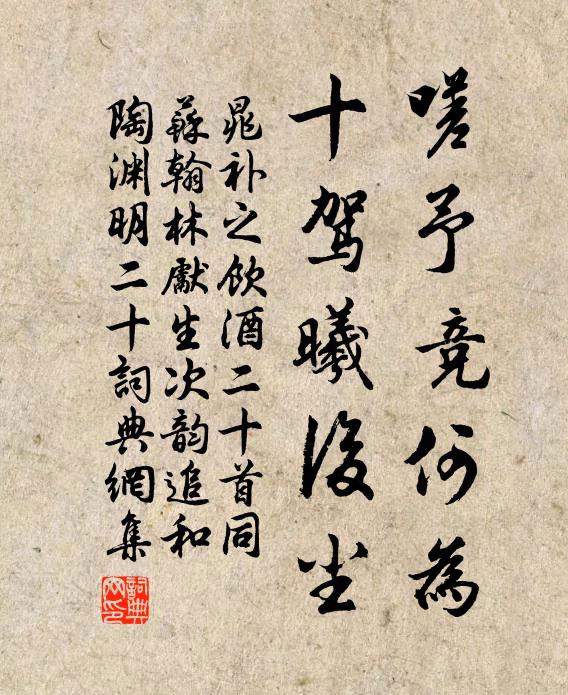 嗟予竟何為
十駕曦後尘
晁补之飲酒二十首同
蘇翰林獻生次韵追和
陶渊明二十詞典網集
詞典
网印